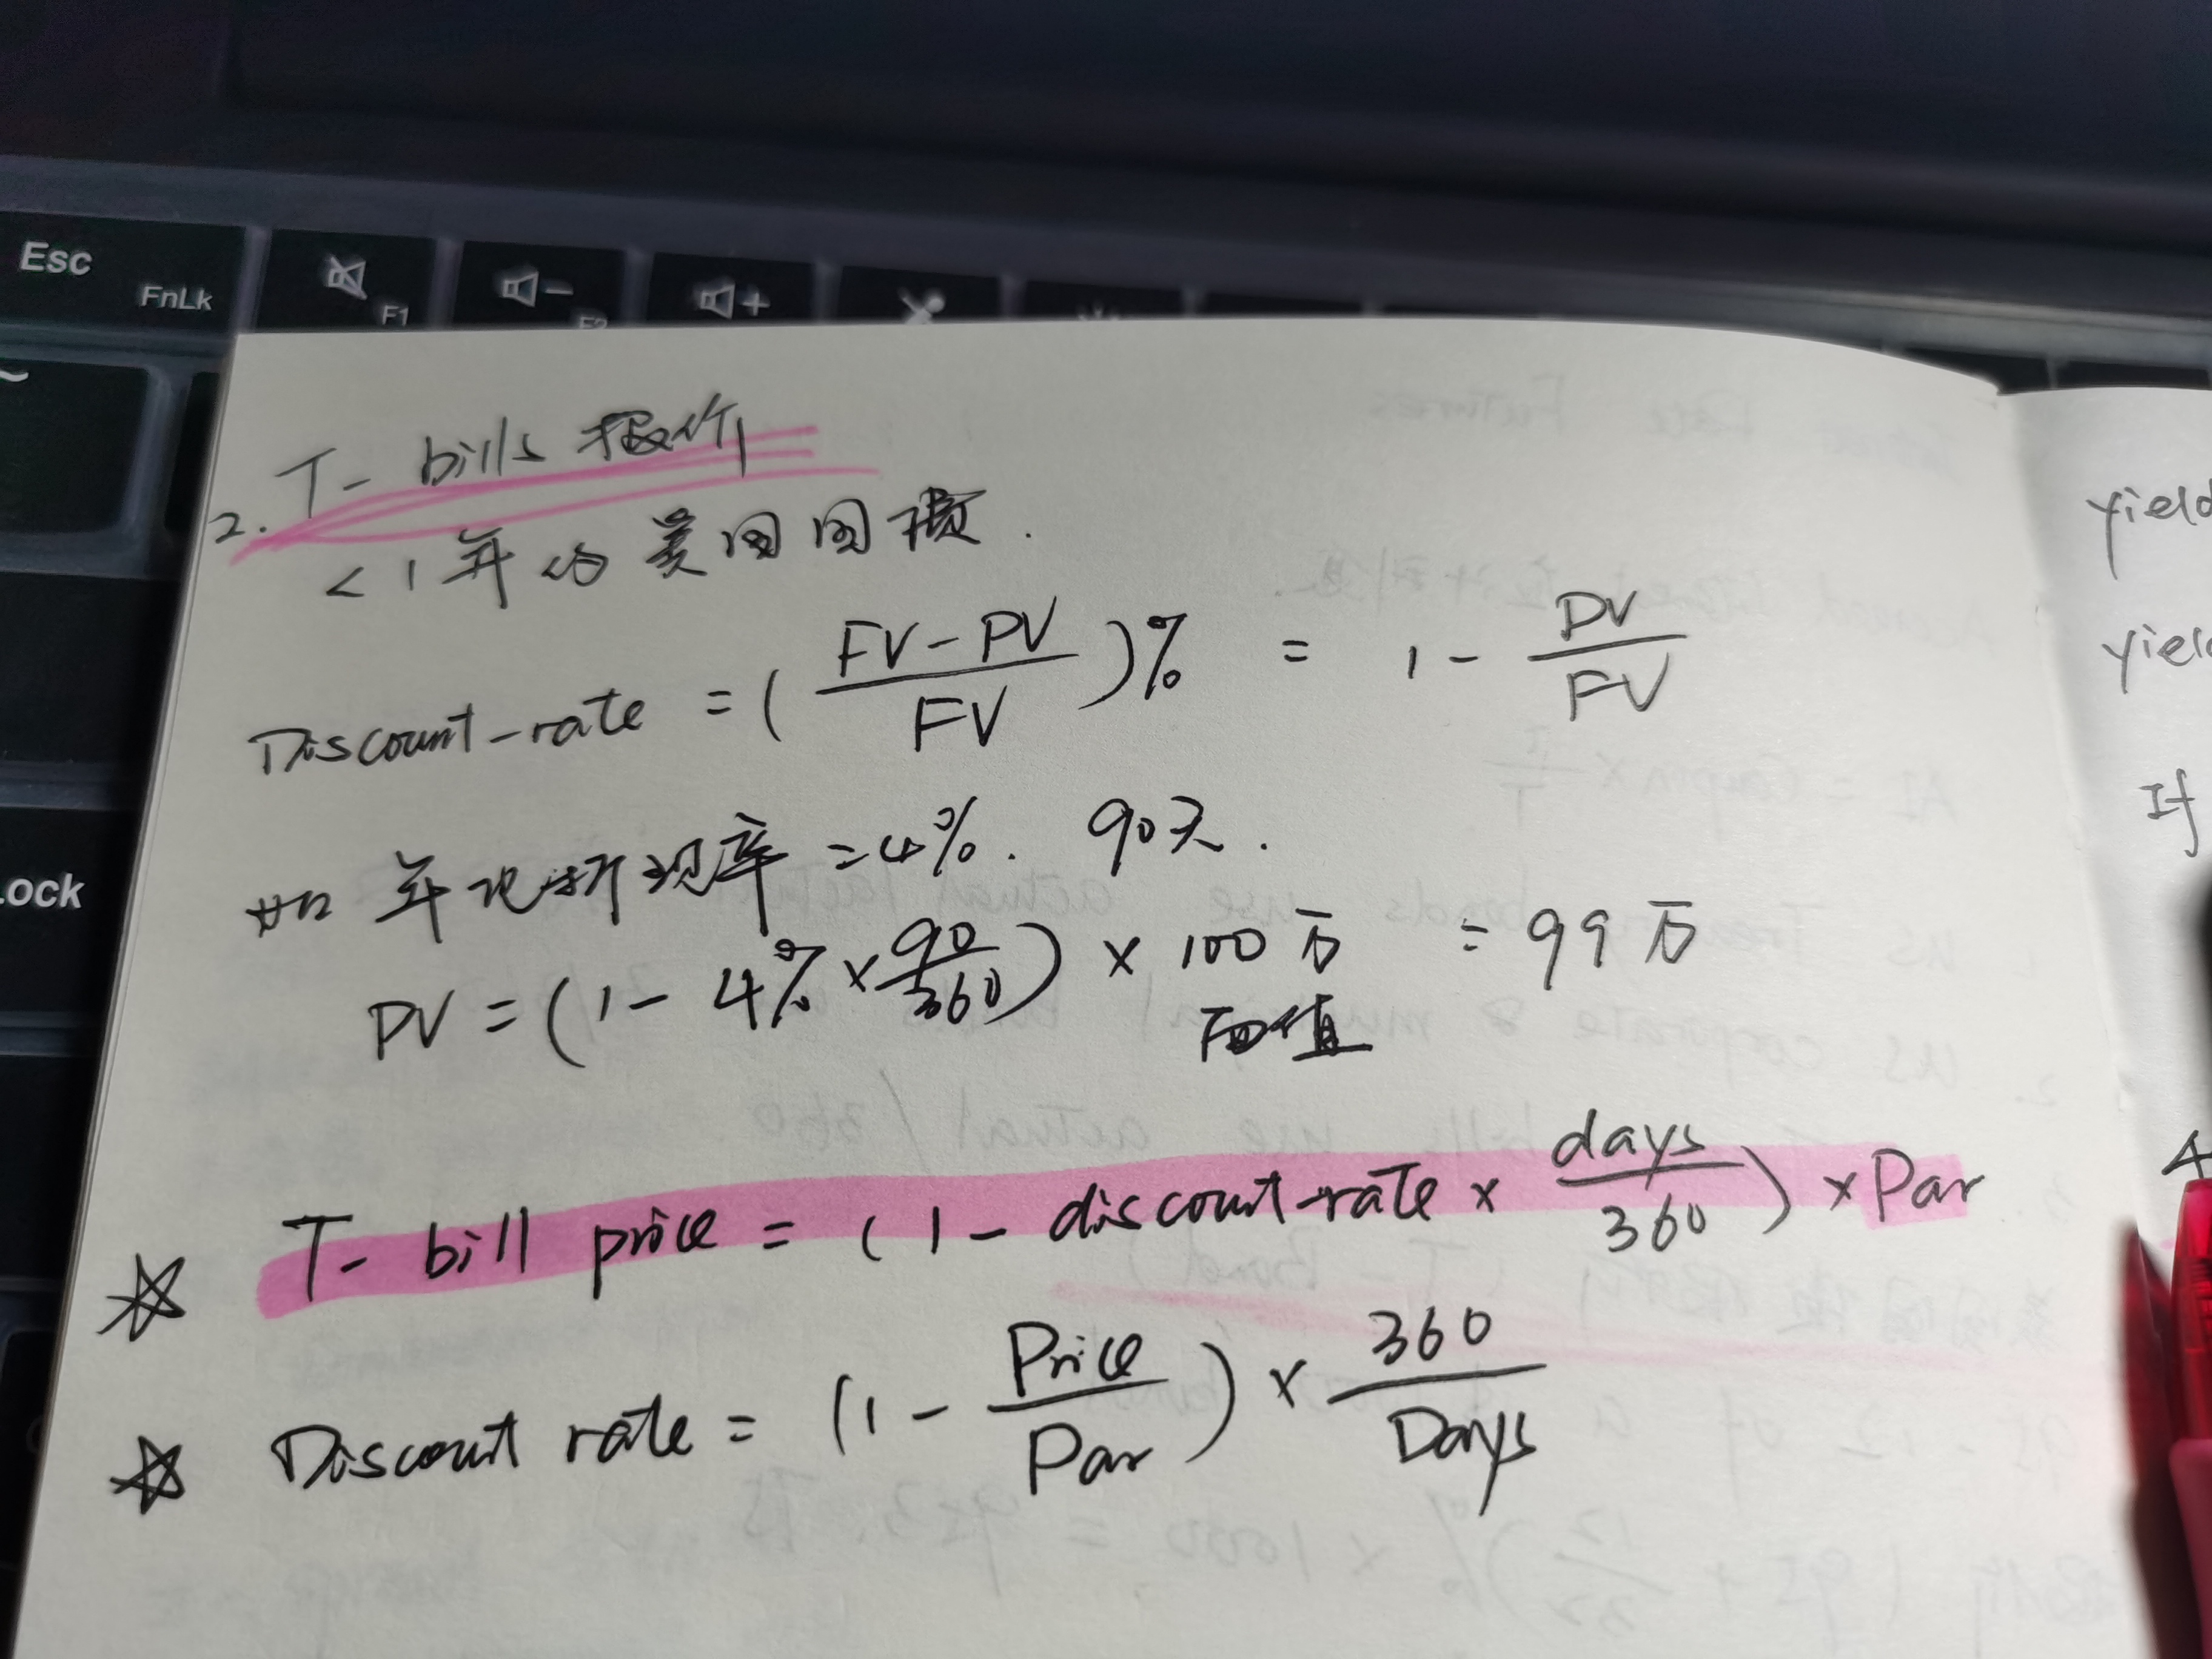 Esc
FnLk
F1
F2
Lock
2. T- bills 报价
< 1年的美国国债.
Discount-rate = ( FV-PV / FV )% = 1 - PV / FV
如 年化折现率 =4%. 90天.
PV = (1- 4% × 90/360) × 100万 = 99万
面值
☆ T- bill price = ( 1 - discount-rate × days/360 ) × Par
☆ Discount rate = (1 - Price/Par) × 360/Days
yield
yield
If